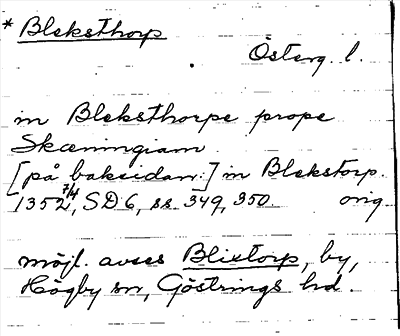 * Bleksthorp
Österg. l.
in Bleksthorpe prope
Skæningiam
[på baksidan:] in Blekstorp.
1352 7/4, SD 6, ss. 349, 350. orig.
möjl. avses Blixtorp, by,
Högby sn, Göstrings hd.